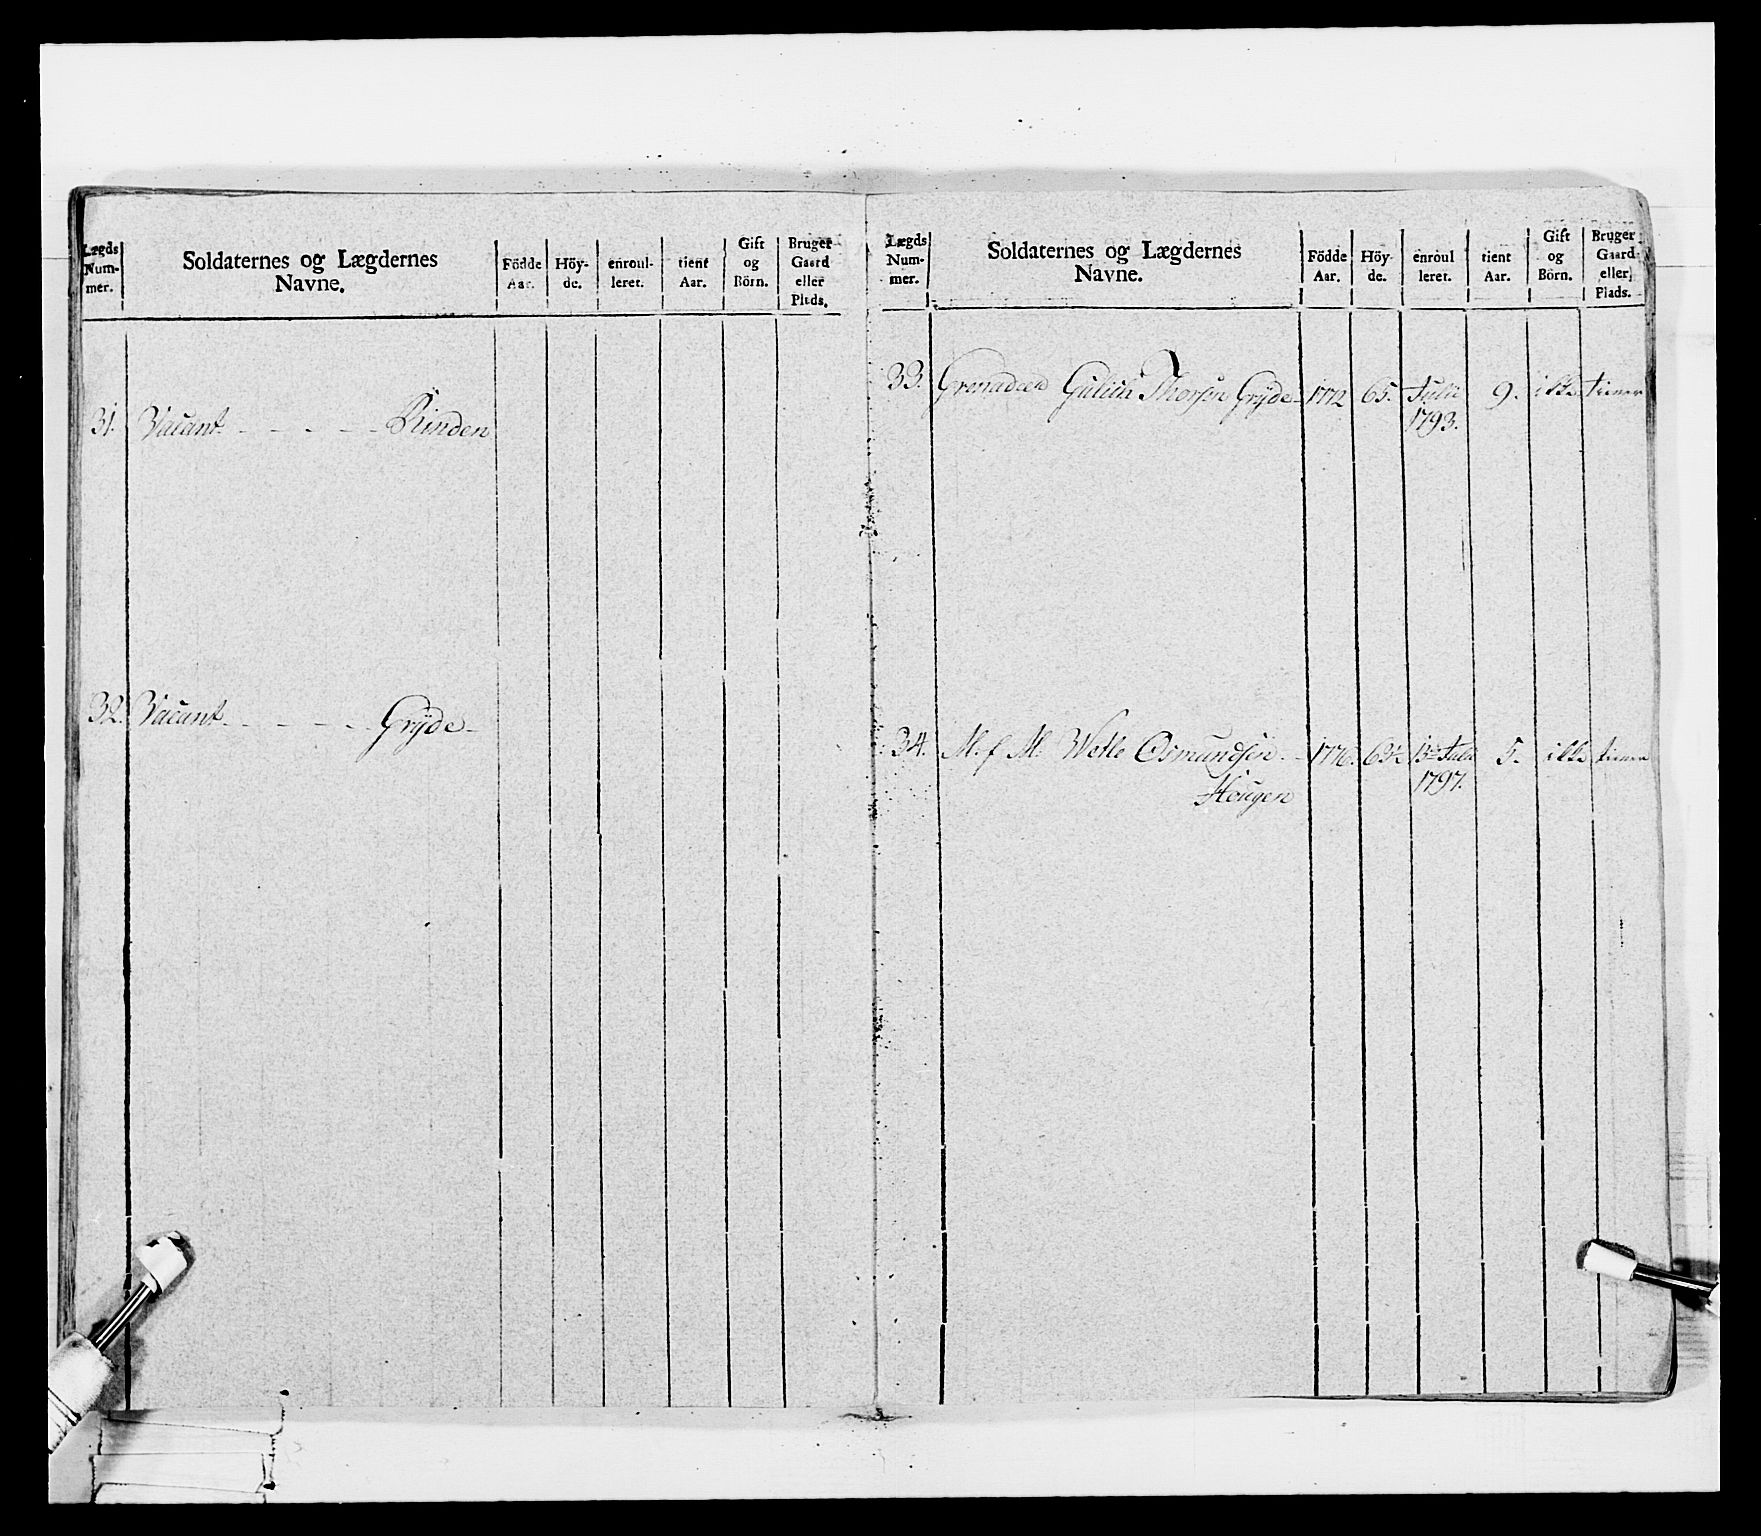 Lægds Num- mer. Soldaternes og Lægdernes Navne. Födde Aar. Höy- de. enroul- leret. tient Aar. Gift og Börn. Bruger Gaard eller Plads.
31. Vacant - - - - - Rinden
32. Vacant - - - - - Grÿde
Lægds Num- mer. Soldaternes og Lægdernes Navne. Födde Aar. Höy- de. enroul leret. tient Aar. Gift og Börn. Bruger Gaard eller Plads.
33. Grenadeer Thorsen Grÿde 1772 65. Julii 9. ikke tiener
1793.
34. M. f. M. Wetle Osmundsen 1776. 5. ikke tiener
Hougen 1797.